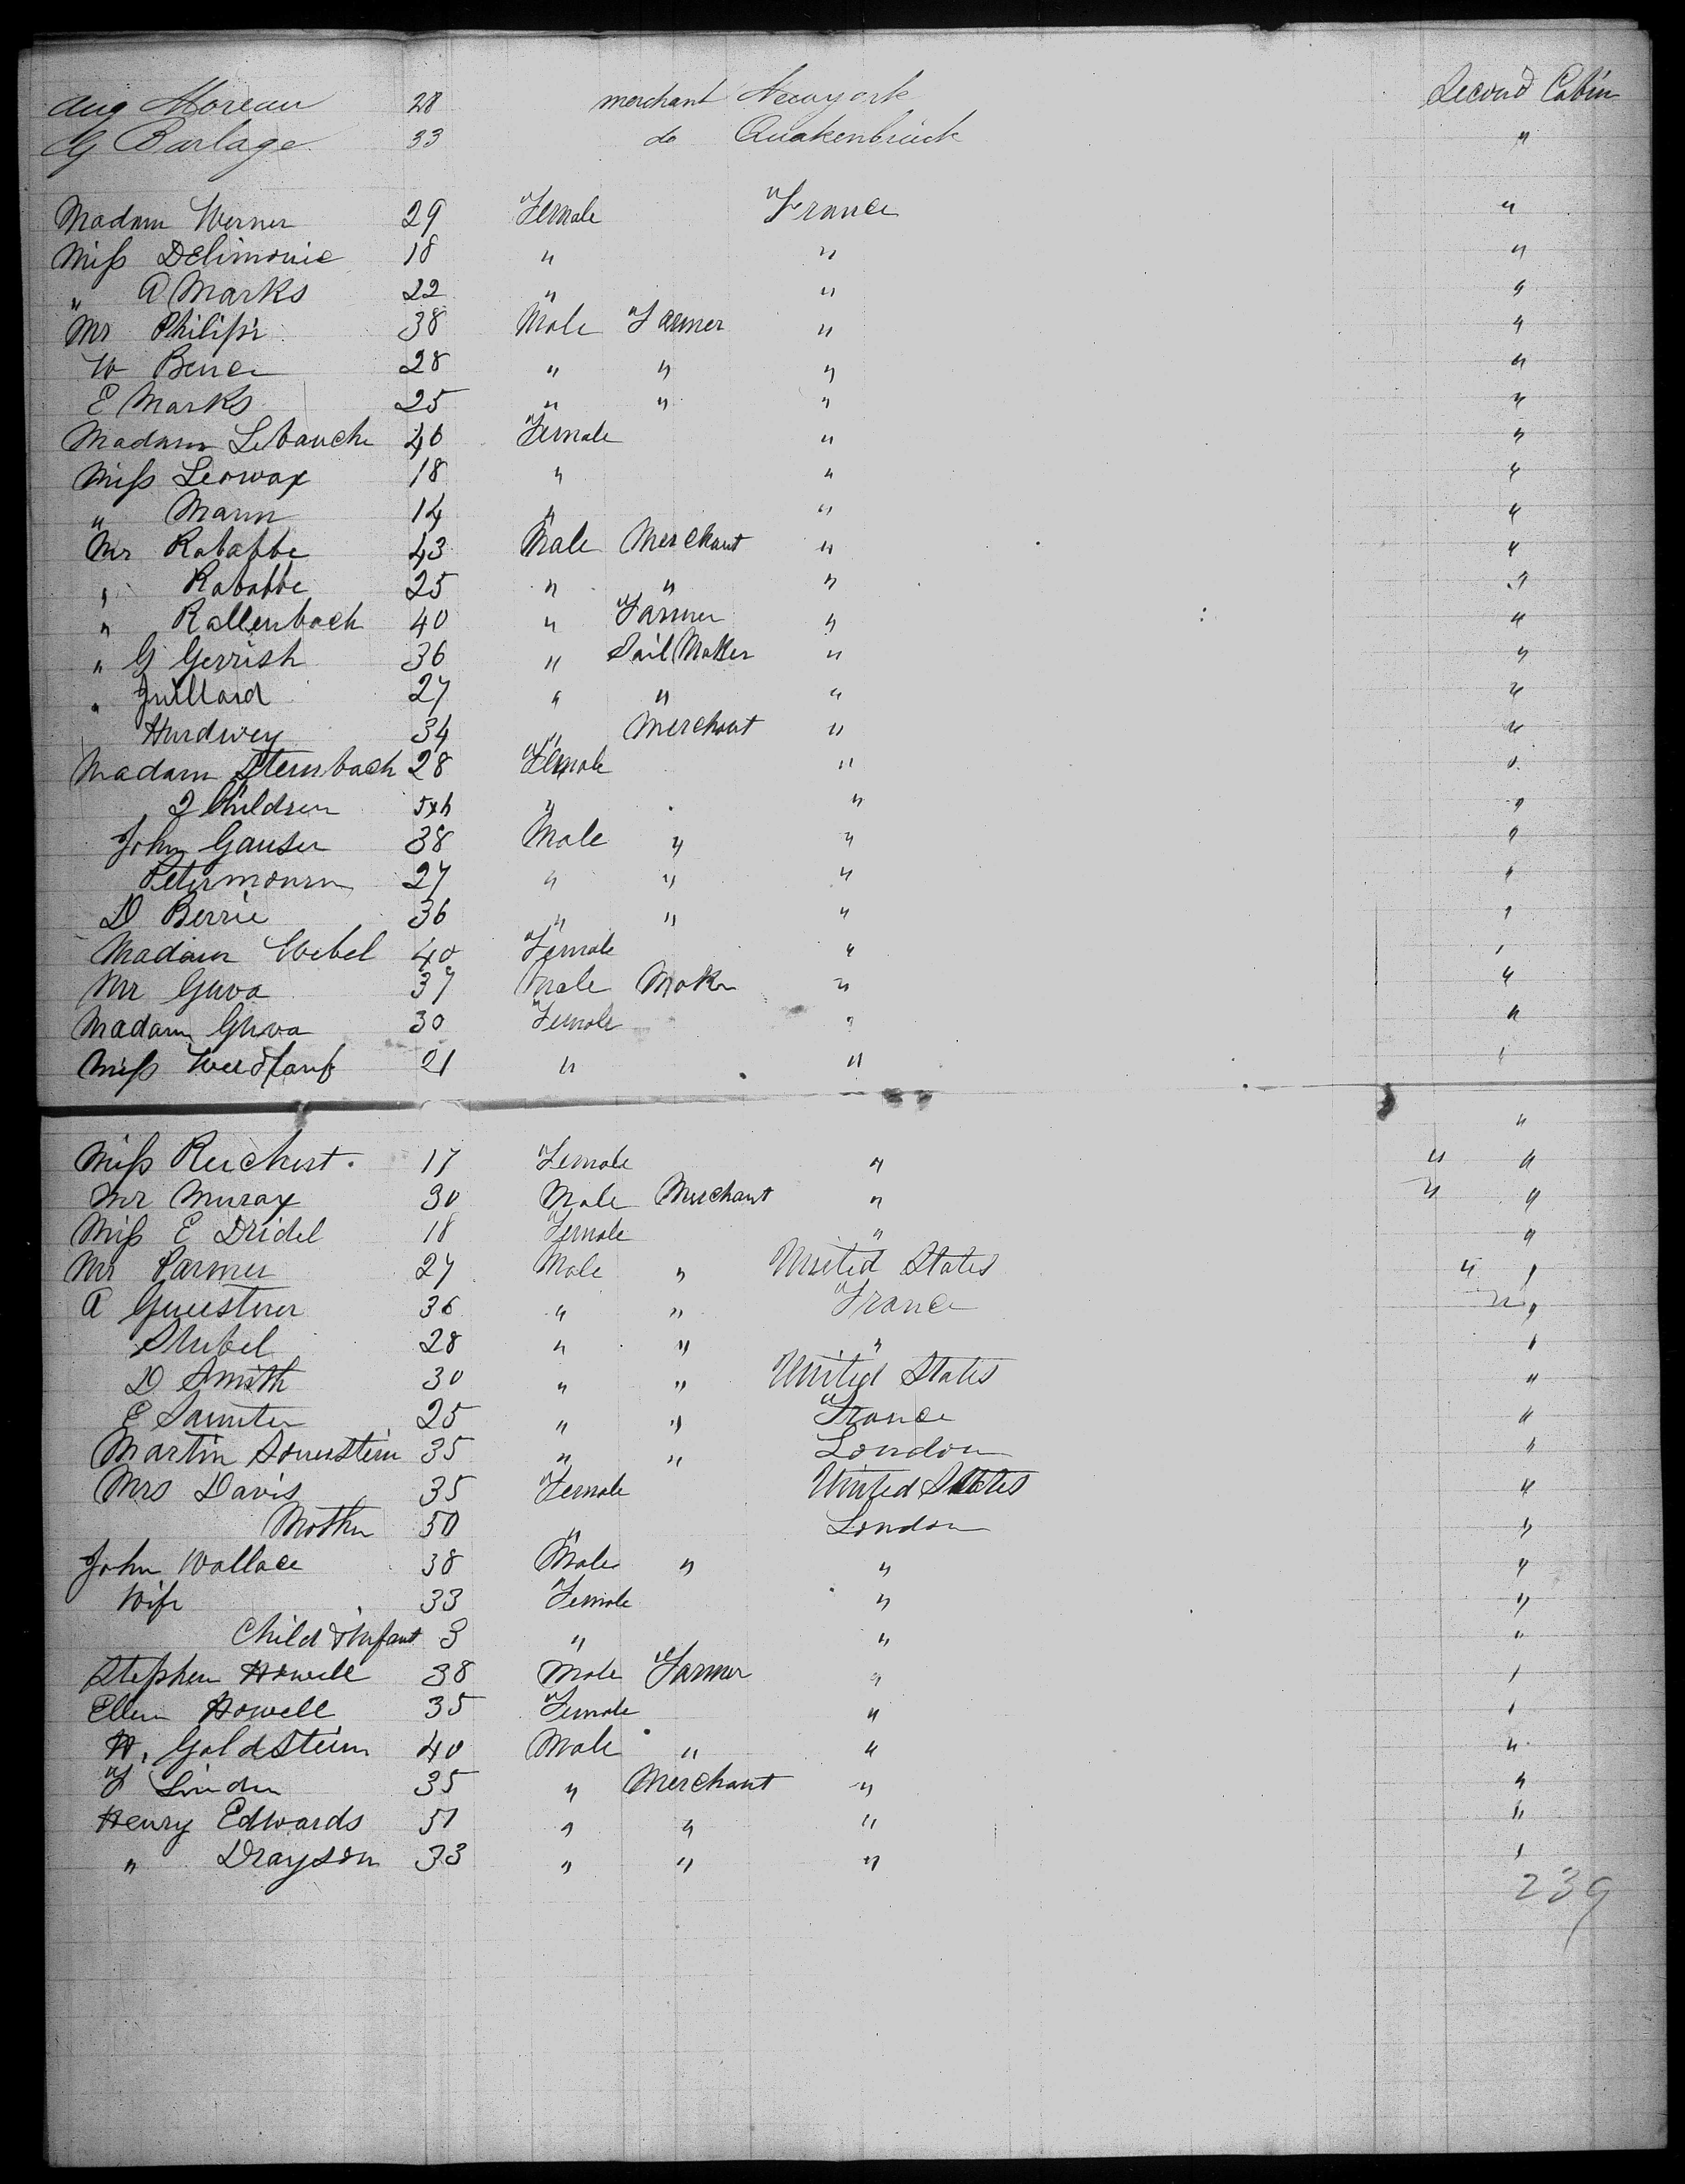 Aug Moreau 28 merchant Newyork Second Cabin
G Barlage 33 do Quakenbrück "
Madam Werner 29 Female France "
Miss Delimonie 18 " " "
" A Marks 22 " " "
Mr Philippi 38 Male Farmer " "
W 28 " " " "
E Marks 25 " " " "
Madam Lebauche 46 Female " "
Miss Leowax 18 " " "
" Mann 14 " " "
Mr Rabappe 43 Male Merchant " "
" Rabappe 25 " " " "
" Rallenbach 40 " Farmer " "
" G Gerrish 36 " Sail Maker " "
" Juillard 27 " " " "
Hurdwey 34 " Merchant " "
Madam Steinbach 28 Female " "
2 Children 5 & " " "
John Ganser 38 Male " " "
Petermann 27 " " " "
D Berrie 36 " " " "
Madam Webel 40 Female " "
Mr Guva 37 Male Maker " "
Madam Guva 30 Female " "
Miss 21 " " "
"
Miss Reichert 17 Female " " "
Mr Murax 30 Male Merchant " " "
Miss E Dridel 18 Female " "
Mr Parmer 27 Male " United States " "
A 36 " " France " "
Strebel 28 " " " "
D Smith 30 " " United States "
E 25 " " France "
Martin Sonnstein 35 " " London "
Mrs Davis 35 Female United States "
Mother 50 " London "
John Wallace 38 Male " " "
Wife 33 Female " "
Child & Infant 3 " " "
Stephen Howell 38 Male Farmer " "
Ellen Howell 35 Female " "
H. Goldstein 40 Male " " "
F Linden 35 " Merchant " "
Henry Edwards 51 " " " "
" Drayson 33 " " " "
239